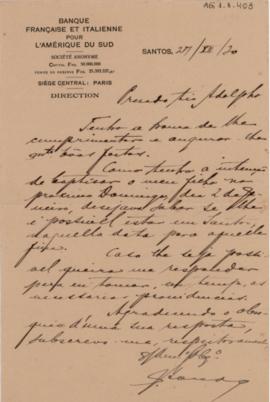 AG 1.1.403
BANQUE
FRANÇAISE ET ITALIENNE
POUR
L'AMÉRIQUE DU SUD
SOCIÉTÉ ANONYME
SIÈGE CENTRAL: PARIS
DIRECTION
SANTOS, 27/XII/20
Prezado tio Adolpho
Tenho a honra de lhe
cumprimentar e augurar
boas festas.
Como tenho a intenção
de baptisar o meu filho no
proximo Domingo, dia 2 de Ja-
neiro, desejava saber se lhe
é possivel estar em Santos
naquella data para aquelle
fim.
Caso lhe seja possi-
vel queira me responder
para eu tomar, em tempo, as
necessarias providencias.
Agradecendo o obse-
quio d'uma sua resposta,
subscrevo-me, respeitosamente